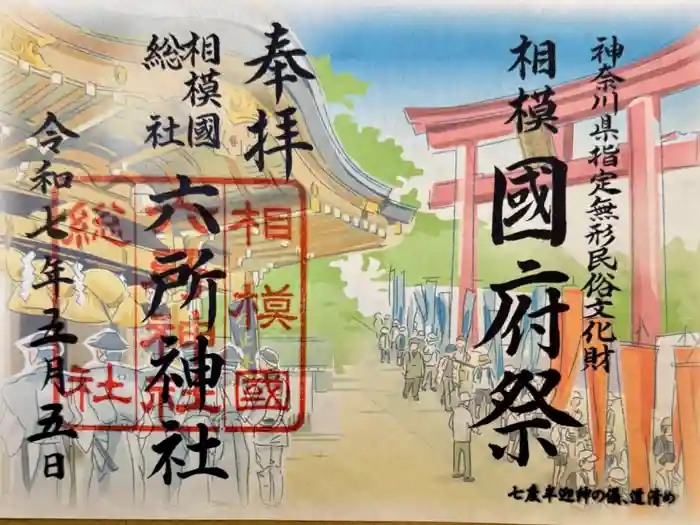 神奈川県指定無形民俗文化財
相模國府祭
七度半迎神の儀、道清め
奉拝
相模國
総社
六所神社
相模國
六所神社
総社
令和七年五月五日